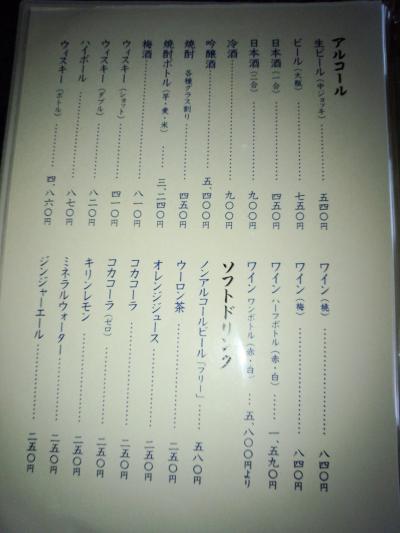 アルコール
生ビール(中ジョッキ)………五四〇円
ビール(大瓶)………七五〇円
日本酒(一合)………四五〇円
日本酒(二合)………九〇〇円
冷酒………九〇〇円
吟醸酒………五、四〇〇円
焼酎 各種グラス割り………四五〇円
焼酎ボトル(芋・麦・米)………三、二四〇円
梅酒………八一〇円
ウィスキー(ショット)………四一〇円
ウィスキー(ダブル)………八二〇円
ハイボール………八七〇円
ウィスキー(ボトル)………四、八六〇円
ワイン(桃)………八四〇円
ワイン(梅)………八四〇円
ワイン ハーフボトル(赤・白)…一、五九〇円
ワイン ワンボトル(赤・白)…五、八〇〇円より
ソフトドリンク
ノンアルコールビール「フリー」………五八〇円
ウーロン茶………二五〇円
オレンジジュース………二五〇円
コカコーラ………二五〇円
コカコーラ(ゼロ)………二五〇円
キリンレモン………二五〇円
ミネラルウォーター………二五〇円
ジンジャーエール………二五〇円